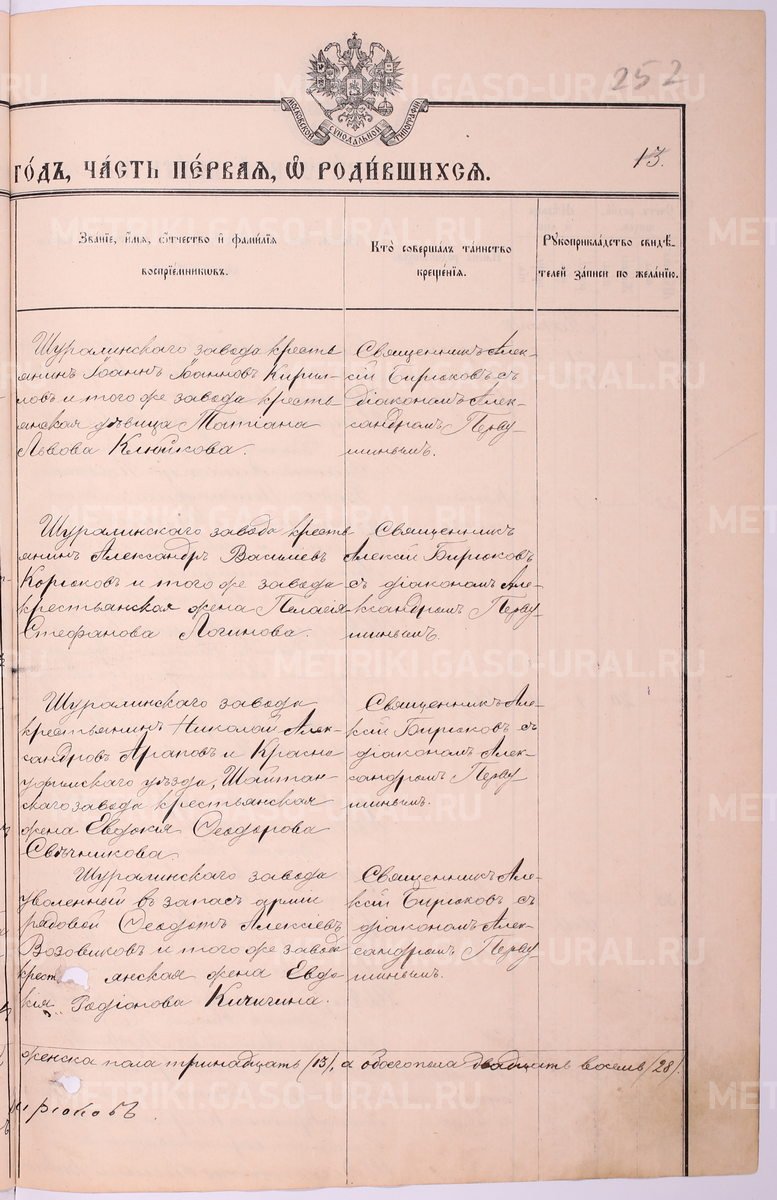 252
МОСКОВСКОЙ СѴНОДАЛЬНОЙ ТИПОГРАФІИ
13.
ГО́ДЪ, ЧА́СТЬ ПЕ́РВАЯ, Ѡ РОДИ́ВШИХСЯ.
Зва́ніе, и́мя, ѻ́тчество и фами́лія
воспріе́мниковъ.
Кто̀ соверша́лъ та́инство
креще́нія.
Рꙋкоприкла́дство свидѣ́-
телей за́писи по жела́нію.
Шуралинскаго завода кресть
янинъ Іоаннъ Іоанновъ Кирил-
ловъ и того же завода кресть
янская дѣвица Татіана
Львова Клюйкова.
Священникъ Алек-
сій Бирюковъ съ
діакономъ Алек-
сандромъ Перву-
шинымъ.
Шуралинскаго завода кресть
янинъ Александръ Васильевъ
Корюковъ и того же завода
крестьянская жена Пелагія
Стефанова Логинова.
Священникъ
Алексій Бирюковъ
съ діакономъ Але-
ксандромъ Перву
шинымъ.
Шуралинскаго завода
крестьянинъ Николай Алек-
сандровъ Араповъ и Красно
уфимскаго уѣзда, Шайтан-
скаго завода крестьянская
жена Евдокія Ѳеодорова
Свѣчникова.
Священникъ Але-
ксій Бирюковъ съ
діакономъ Алек-
сандромъ Перву
шинымъ.
Шуралинскаго завода
уволенный въ запасъ арміи
рядовой Ѳеодотъ Алексіевъ
Возовиковъ и того же завода
крест янская жена Евдо-
кія Родіонова Кичигина.
Священникъ Але-
ксій Бирюковъ съ
діакономъ Алек-
сандромъ Перву
шинымъ.
женска пола тринадцать (13), а обоего пола двадцать восемь (28).
ирюковъ
METRIKI.GASO-URAL.RU